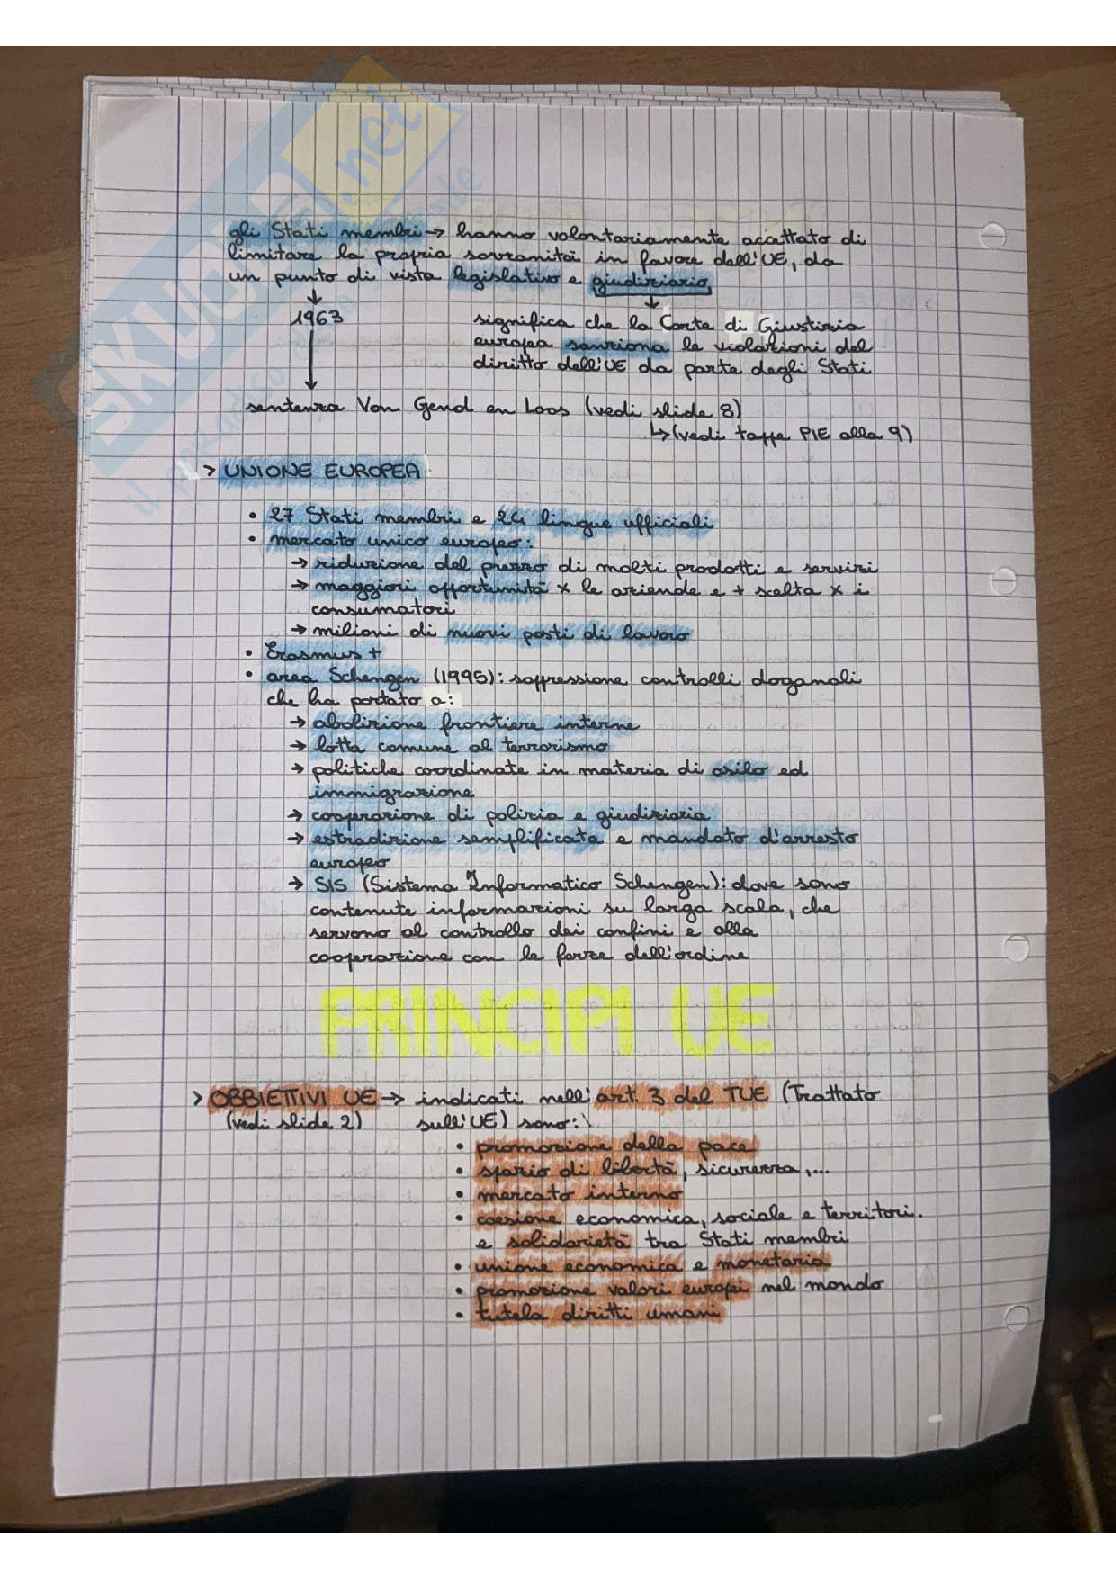 gli Stati membri → hanno volontariamente accettato di
limitare la propria sovranità in favore dell'UE, da
un punto di vista legislativo e giudiziario
↓ ↓
1963 significa che la Corte di Giustizia
europea sanziona le violazioni del
diritto dell'UE da parte degli Stati
↓
sentenza Van Gend en Loos (vedi slide 8)
↳ (vedi tappe PIE alla 9)
> UNIONE EUROPEA
• 27 Stati membri e 24 lingue ufficiali
• mercato unico europeo:
→ riduzione del prezzo di molti prodotti e servizi
→ maggiori opportunità x le aziende e + scelta x i
consumatori
→ milioni di nuovi posti di lavoro
• Erasmus +
• area Schengen (1995): soppressione controlli doganali
che ha portato a:
→ abolizione frontiere interne
→ lotta comune al terrorismo
→ politiche coordinate in materia di asilo ed
immigrazione
→ cooperazione di polizia e giudiziaria
→ estradizione semplificata e mandato d'arresto
europeo
→ SIS (Sistema Informatico Schengen): dove sono
contenute informazioni su larga scala, che
servono al controllo dei confini e alla
cooperazione con le forze dell'ordine
PRINCIPI UE
> OBBIETTIVI UE → indicati nell'art. 3 del TUE (Trattato
(vedi slide 2) sull'UE) sono:
• promozione della pace
• spazio di libertà, sicurezza,...
• mercato interno
• coesione economica, sociale e territori.
e solidarietà tra Stati membri
• unione economica e monetaria
• promozione valori europei nel mondo
• tutela diritti umani
SKUOLA.net